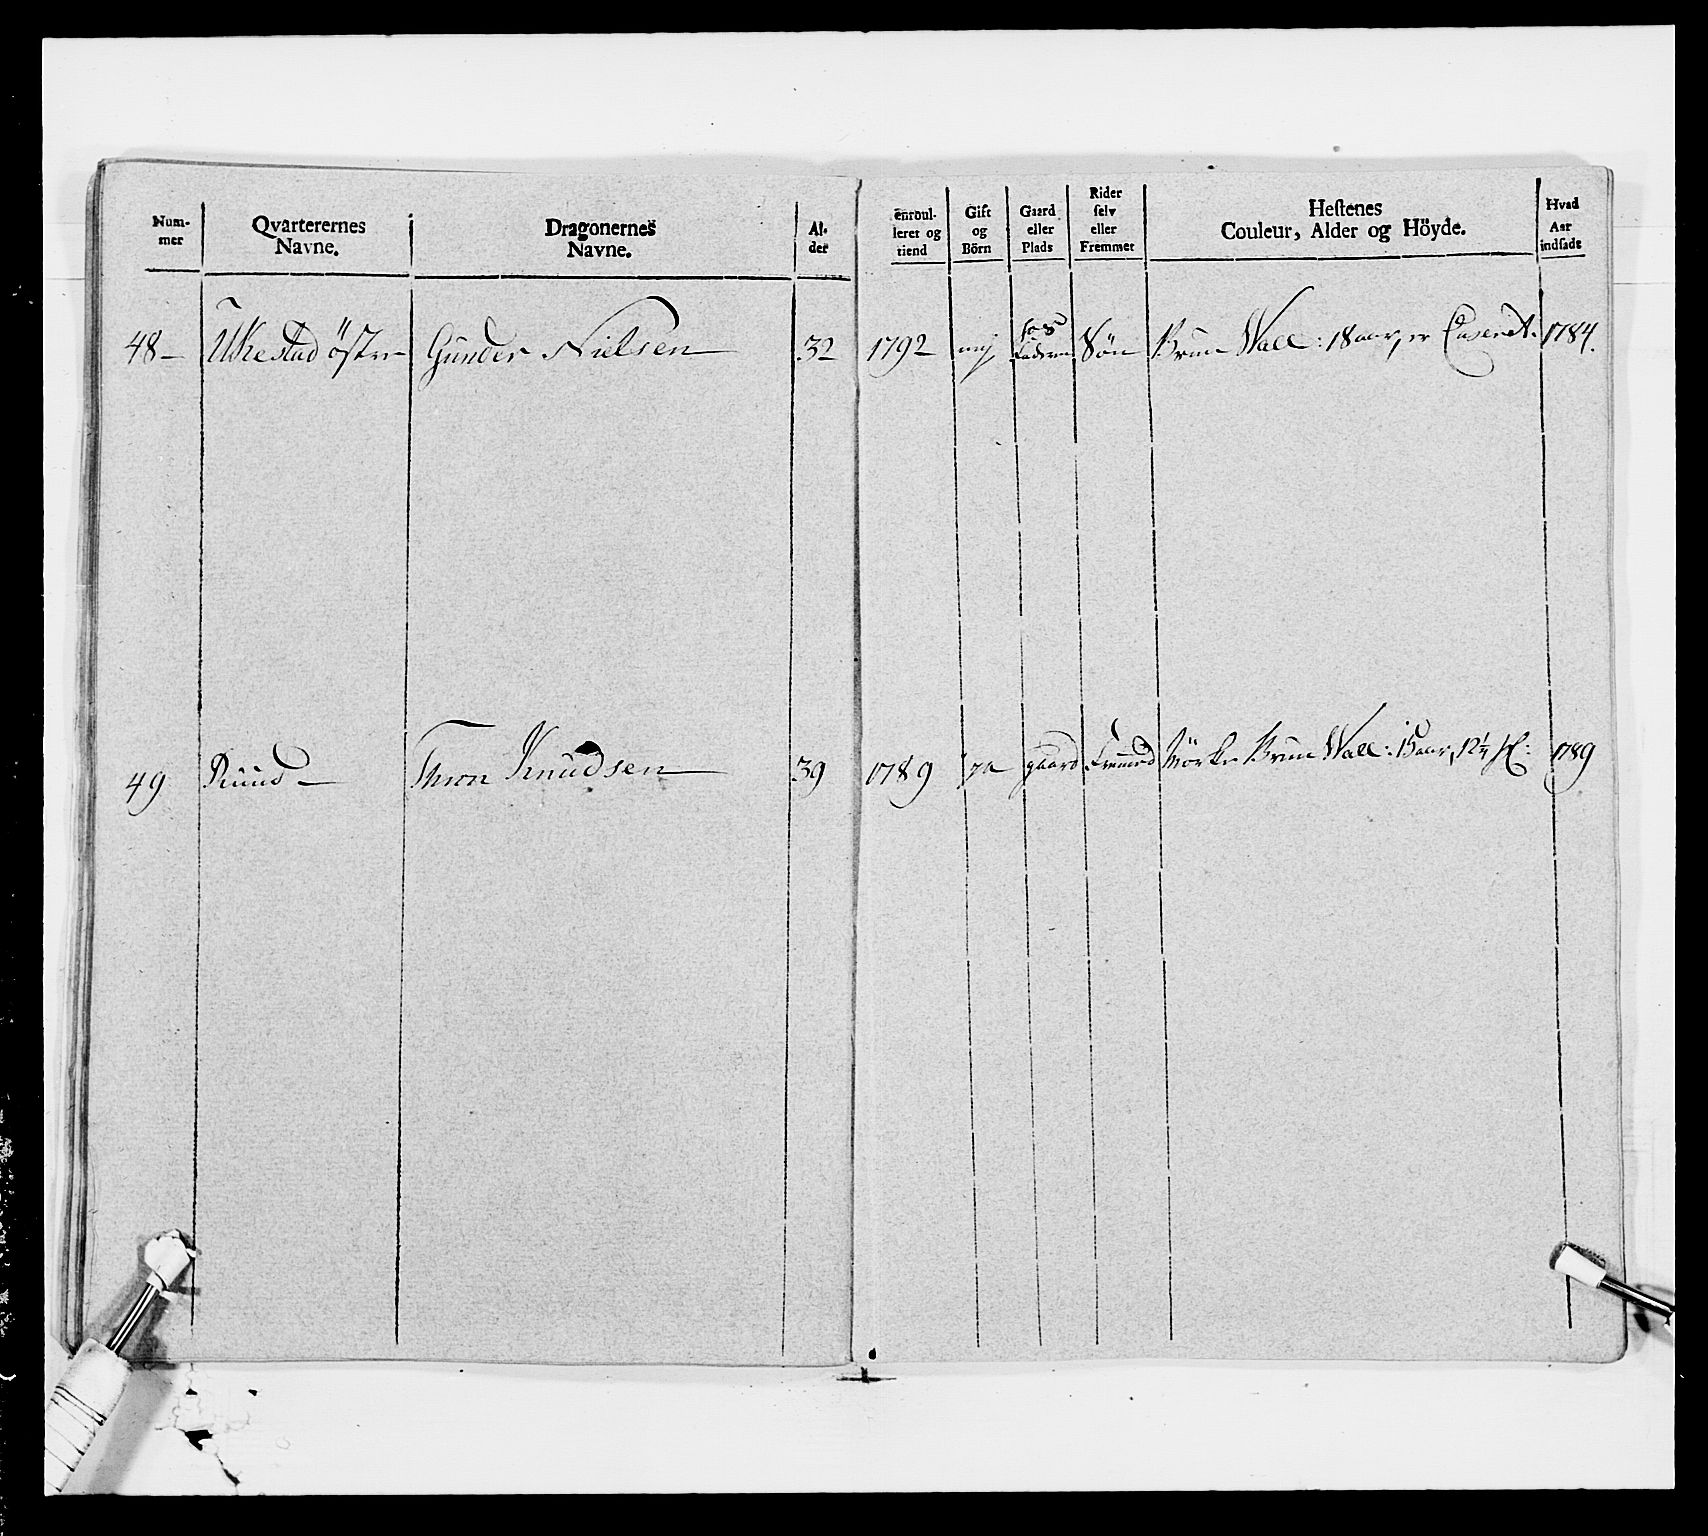 Num-
mer
Qvarterernes
Navne.
Dragonernes
Navne.
Al-
der
enroul-
leret og
tiend
Gift
og
Börn
Gaard
eller
Plads
Rider
selv
eller
Fremmet
Hestenes
Couleur, Alder og Höyde.
Hvad
Aar
indsadt
48 - Ukestad östre Gunder Nielsen 32 1792 nej hos Faderen Sön Bruun Wall: 18 aar, er Casseret. 1784.
49 Ruud - Thron Knudsen 39 1789 ja gaard Fremmed Mörke Bruun Wall: 15 aar, 12¼ 1789